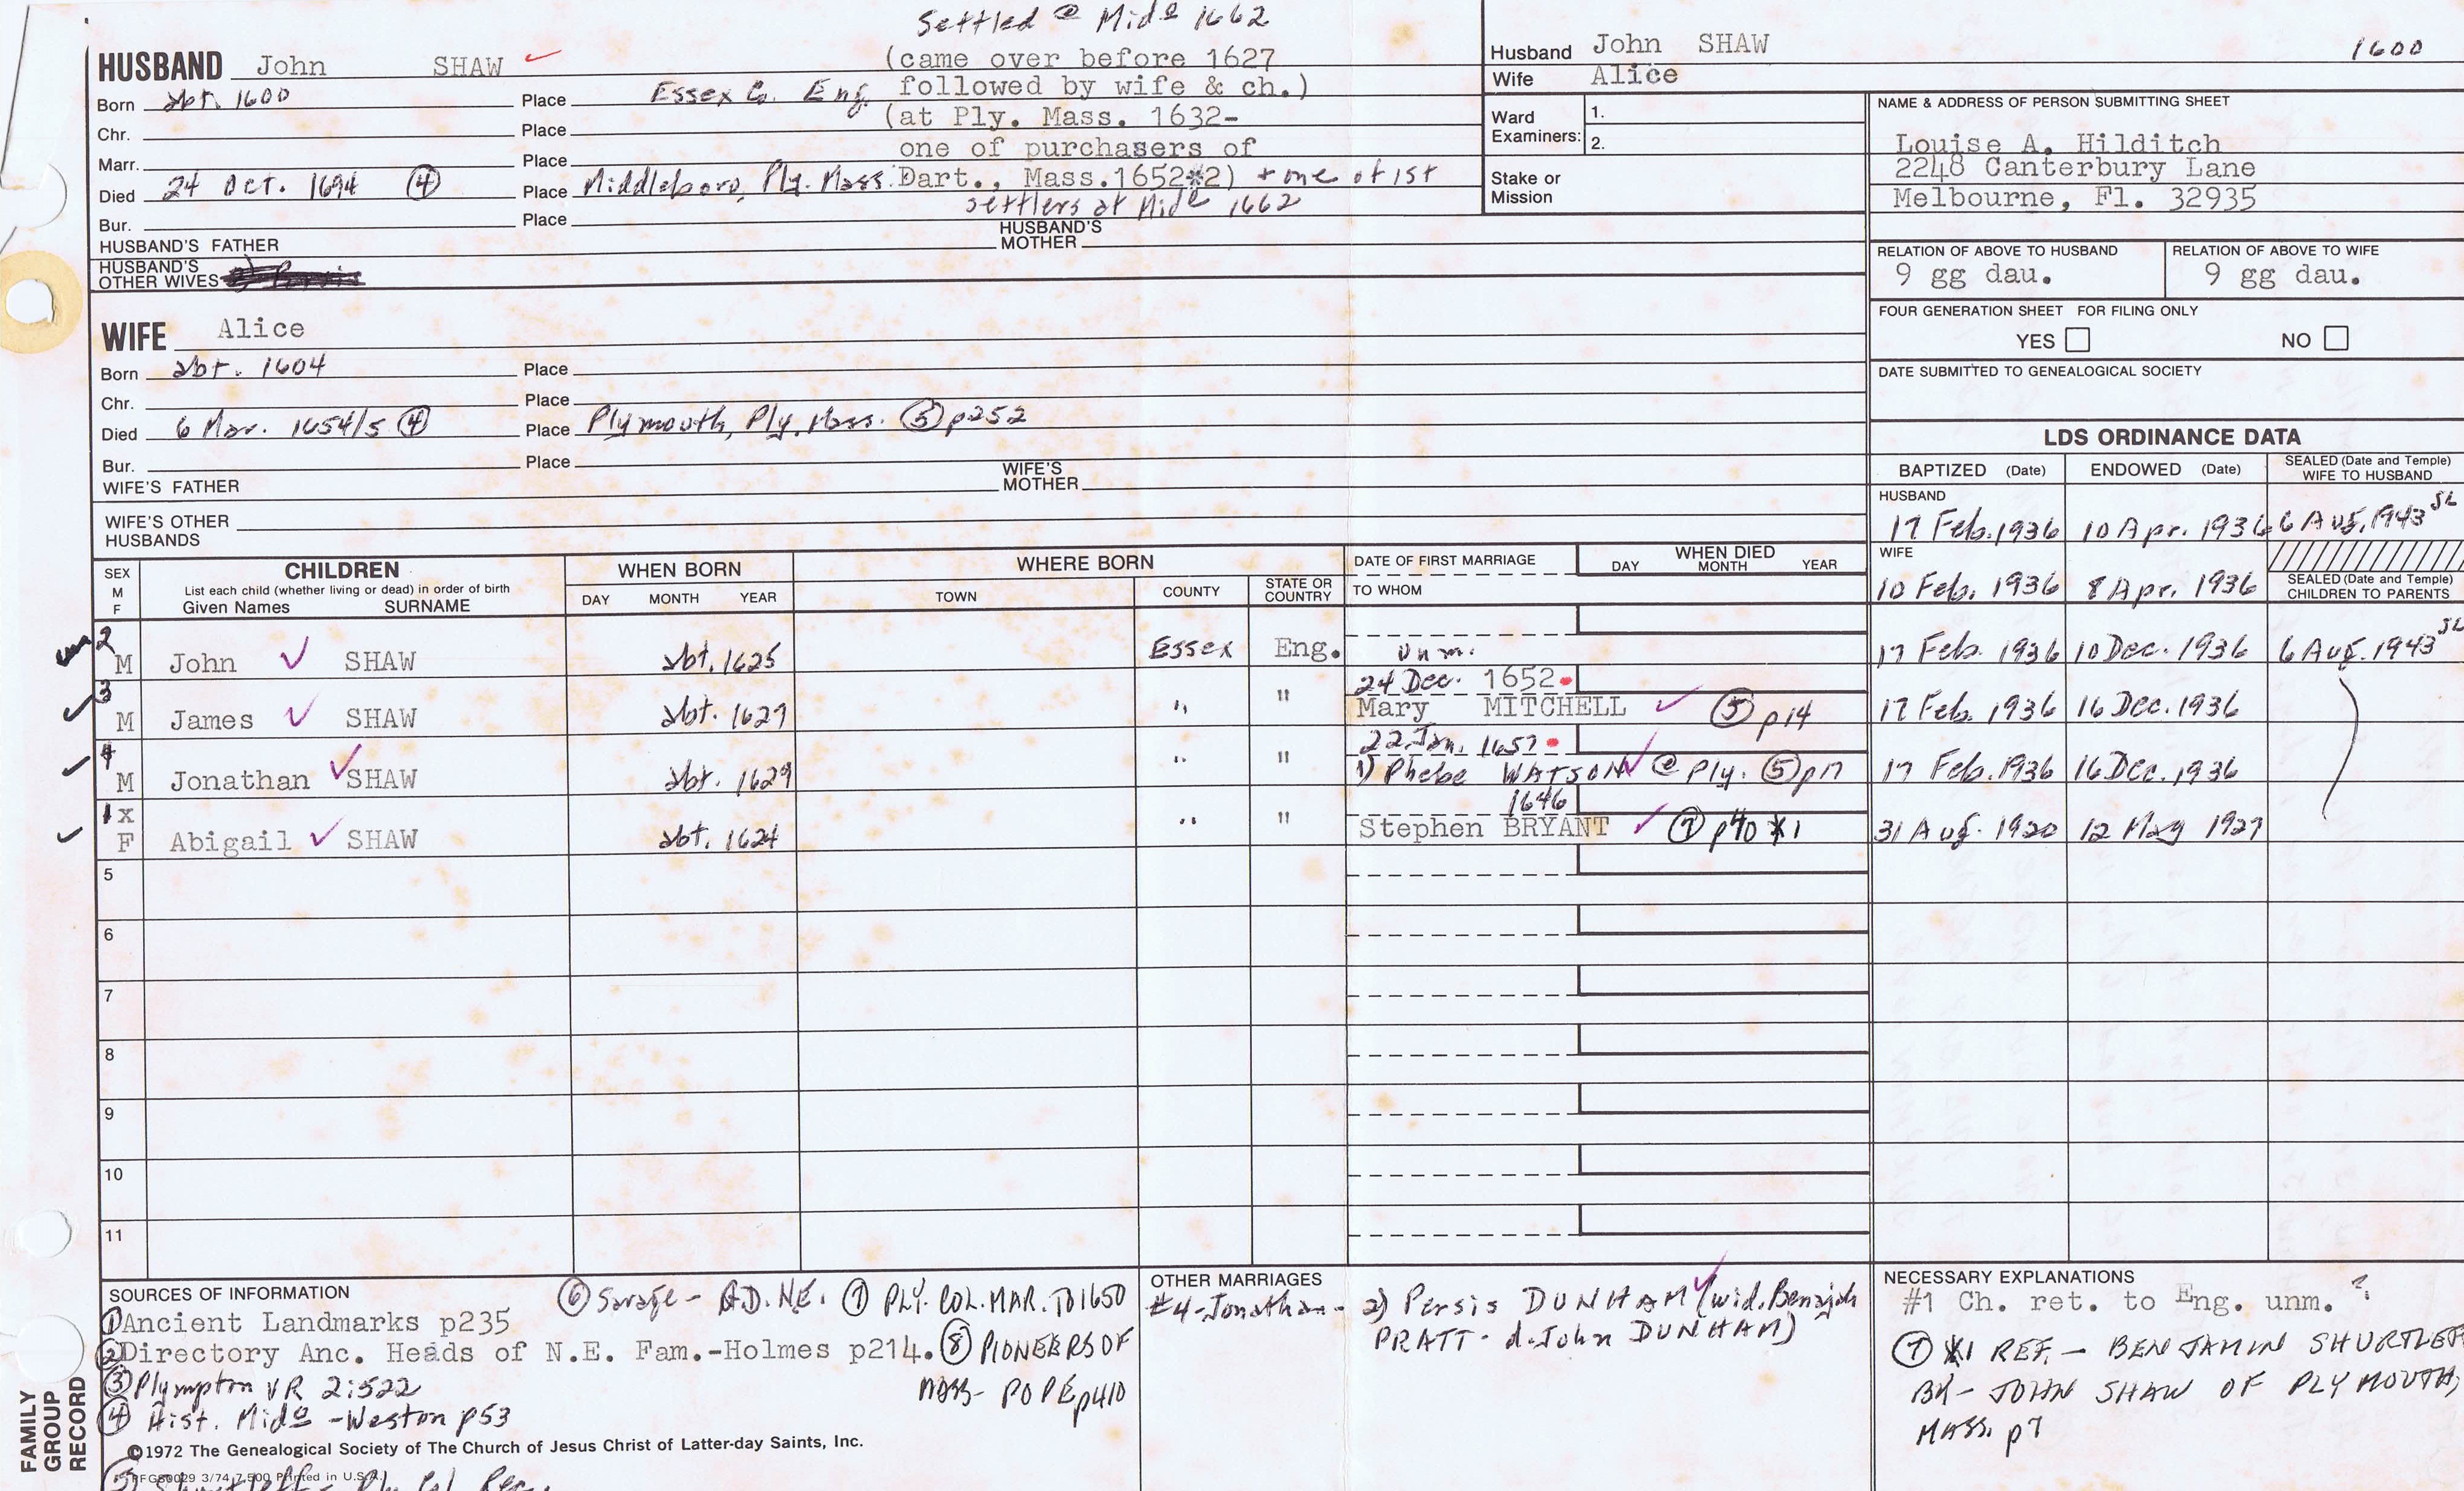 Settled @ Mido 1662
HUSBAND John SHAW
(came over before 1627
Husband John SHAW 1600
Born abt. 1600 Place Essex Co. Eng. followed by wife & ch.)
Wife Alice
Chr. Place (at Ply. Mass. 1632-
Ward Examiners: 1. 2.
NAME & ADDRESS OF PERSON SUBMITTING SHEET
Marr. Place one of purchasers of
Louise A. Hilditch
2248 Canterbury Lane
Melbourne, Fl. 32935
Died 24 Oct. 1694 (4) Place Middleboro, Ply. Mass. Dart., Mass. 1652*2) + one of 1st
Stake or Mission
settlers at Mido 1662
Bur. Place
HUSBAND'S FATHER HUSBAND'S MOTHER
RELATION OF ABOVE TO HUSBAND RELATION OF ABOVE TO WIFE
9 gg dau. 9 gg dau.
HUSBAND'S OTHER WIVES
FOUR GENERATION SHEET FOR FILING ONLY
YES NO
WIFE Alice
Born abt. 1604 Place
DATE SUBMITTED TO GENEALOGICAL SOCIETY
Chr. Place
Died 6 Mar. 1654/5 (4) Place Plymouth, Ply. Mass. (5) p252
Bur. Place
WIFE'S FATHER WIFE'S MOTHER
WIFE'S OTHER HUSBANDS
LDS ORDINANCE DATA
BAPTIZED (Date) ENDOWED (Date) SEALED (Date and Temple) WIFE TO HUSBAND
HUSBAND
17 Feb. 1936 10 Apr. 1936 6 Aug. 1943 SL
WIFE
10 Feb. 1936 8 Apr. 1936
SEALED (Date and Temple) CHILDREN TO PARENTS
SEX M F
CHILDREN
List each child (whether living or dead) in order of birth
Given Names SURNAME
WHEN BORN
DAY MONTH YEAR
WHERE BORN
TOWN COUNTY STATE OR COUNTRY
DATE OF FIRST MARRIAGE
TO WHOM
WHEN DIED
DAY MONTH YEAR
2
M John SHAW abt. 1625 Essex Eng. unm. 17 Feb. 1936 10 Dec. 1936 6 Aug. 1943 SL
3 24 Dec. 1652
M James SHAW abt. 1627 " " Mary MITCHELL (5) p14 17 Feb. 1936 16 Dec. 1936
4 22 Jan. 1657
M Jonathan SHAW abt. 1629 " " 1) Phebe WATSON @ Ply. (5) p17 17 Feb. 1936 16 Dec. 1936
1 X 1646
F Abigail SHAW abt. 1624 " " Stephen BRYANT (7) p40 *1 31 Aug. 1920 12 May 1927
5
6
7
8
9
10
11
SOURCES OF INFORMATION
(6) Savage - G.D.N.E. (7) PLY. COL. MAR. TO 1650
(1) Ancient Landmarks p235
(2) Directory Anc. Heads of N.E. Fam.-Holmes p214. (8) PIONEERS OF
MASS- POPE p410
(3) Plympton VR 2:522
(4) Hist. Mido -Weston p53
OTHER MARRIAGES
#4-Jonathan- 2) Persis DUNHAM (wid. Benajah
PRATT- d. John DUNHAM)
NECESSARY EXPLANATIONS
#1 Ch. ret. to Eng. unm. ?
(7) *1 REF.- BENJAMIN SHURTLEFF
BK- JOHN SHAW OF PLYMOUTH,
MASS. p7
©1972 The Genealogical Society of The Church of Jesus Christ of Latter-day Saints, Inc.
PFGS0029 3/74 7,500 Printed in U.S.A.
(5) Shurtleff - Ply. Col. Rec.
FAMILY
GROUP
RECORD